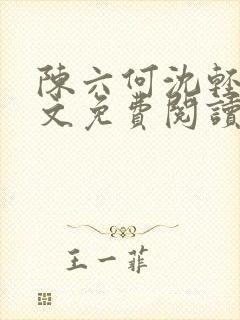 陳六何沈輕
文免費閱讀
王一菲